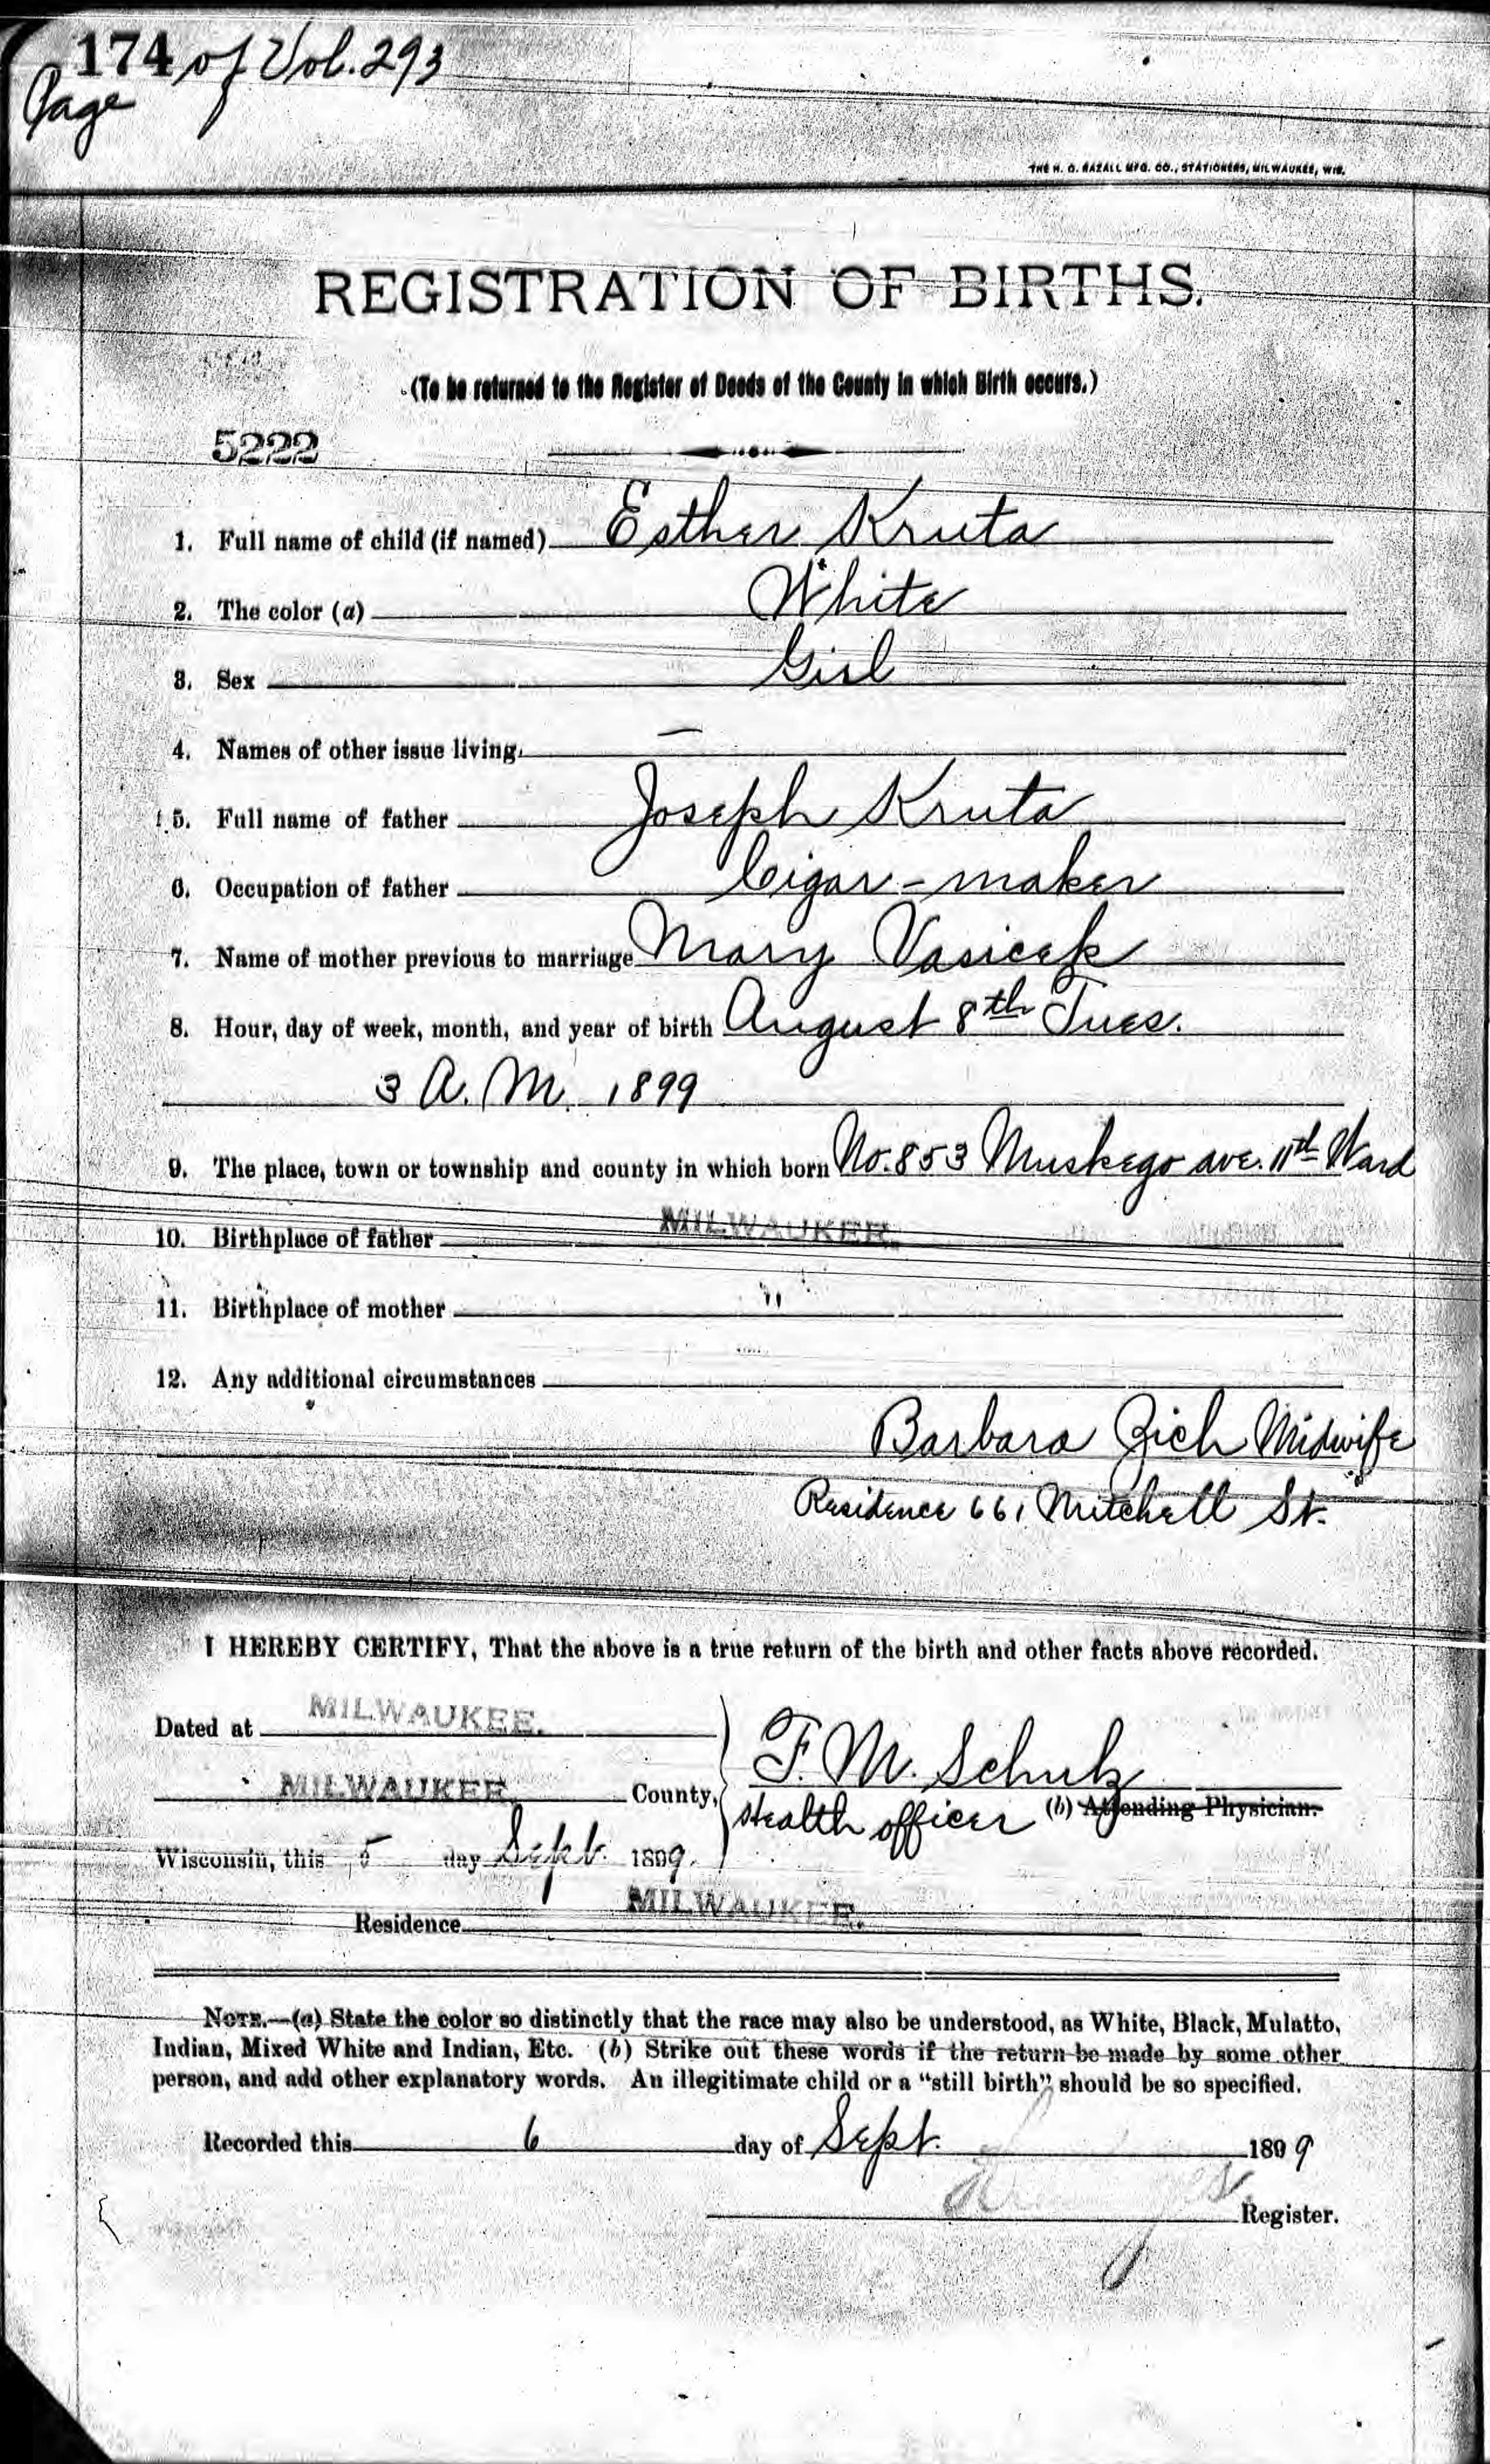 174 of Vol. 293
Page
THE H. O. RAZALL MFG. CO., STATIONERS, MILWAUKEE, WIS.
REGISTRATION OF BIRTHS.
(To be returned to the Register of Deeds of the County in which Birth occurs.)
5222
1. Full name of child (if named) Esther Kruta
2. The color (a) White
3. Sex Girl
4. Names of other issue living. —
5. Full name of father Joseph Kruta
6. Occupation of father Cigar-maker
7. Name of mother previous to marriage Mary Vasicek
8. Hour, day of week, month, and year of birth August 8th Tues.
3 A.M. 1899
9. The place, town or township and county in which born No. 853 Muskego ave. 11th Ward
10. Birthplace of father MILWAUKEE.
11. Birthplace of mother "
12. Any additional circumstances
Barbara Zich Midwife
Residence 661 Mitchell St.
I HEREBY CERTIFY, That the above is a true return of the birth and other facts above recorded.
Dated at MILWAUKEE.
MILWAUKEE County, F. M. Schulz
Health officer (b) Attending Physician.
Wisconsin, this 5 day Sept. 1899.
Residence MILWAUKEE.
NOTE.—(a) State the color so distinctly that the race may also be understood, as White, Black, Mulatto,
Indian, Mixed White and Indian, Etc. (b) Strike out these words if the return be made by some other
person, and add other explanatory words. An illegitimate child or a "still birth" should be so specified.
Recorded this 6 day of Sept. 1899
Register.